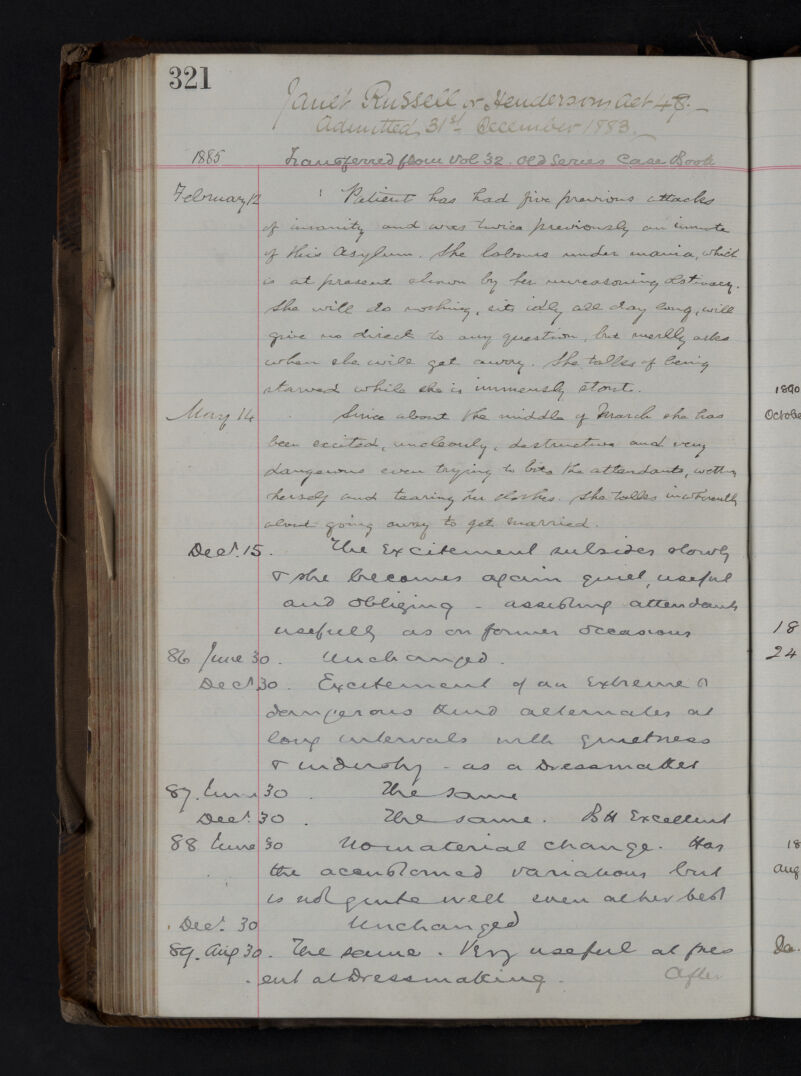 321
Janet Russell or Henderson aet 48.
Admitted 31st December 1883.
1885 Transferred from Vol 32. Old Series Case Book
February 12 Patient has had five previous attacks
of insanity and was twice previously an inmate
of this Asylum. She labours under mania, which
is at present shown by her unreasoning obstinacy.
She will do nothing, sits idly all day long, will
give no direct to any question, but merely asks
when she will get away. She talks of being
starved while she is immensely stout.
May 14 Since about the middle of March she has
been excited, uncleanly, destructive and very
dangerous even trying to bite the attendants, wetting
herself and tearing her clothes. She talks incoherently
about going away to get married.
Decr. 15. The Excitement subsides slowly
& she becomes again quiet, useful
and obliging - assisting attendants
usefully as on former occasions
86 June 30. Unchanged.
Decr 30. Excitement of an Extreme &
dangerous kind alternates at
long intervals with quietness
& industry - as a Dressmaker
87. June 30. The same
Decr. 30. The same. BH Excellent
88 June 30 No material change. Has
the accustomed variations but
is not quite well even at her best
Decr. 30 Unchanged
89. Aug 30. The same. Very useful at pres
ent at Dressmaking. After
1890
Octobe
18
24
18
Aug